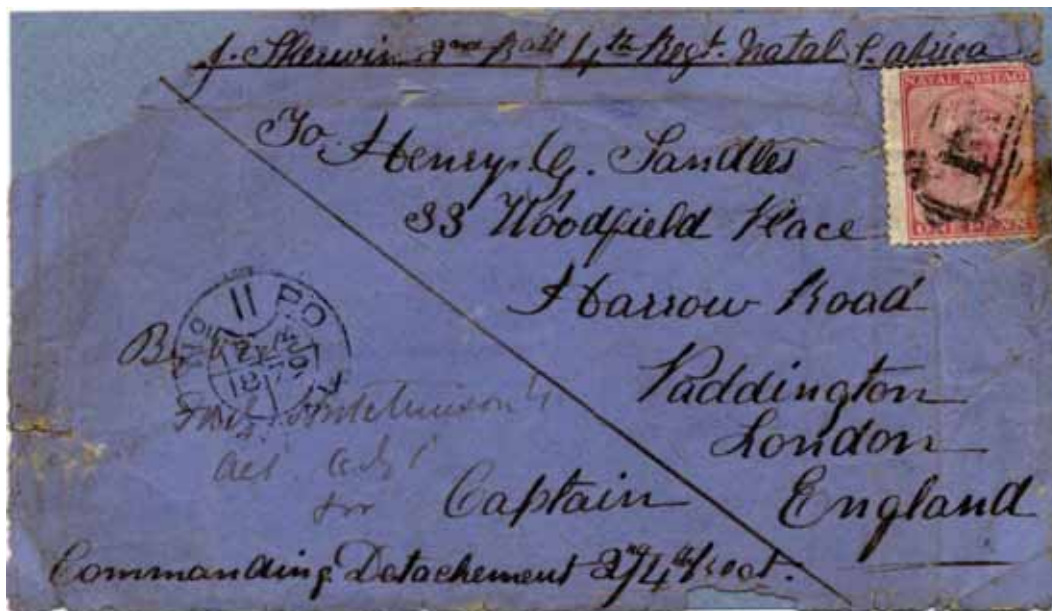 J. Sherwin 2nd Batt 4th Regt. Natal S. Africa
NATAL POSTAGE
To, Henry. G. Sandles
33 Woodfield Place
Harrow Road
Paddington
London
England
11 P.O
By
Act. Adjt
for
Captain
Commanding Detachement 2nd/4th Foot.
ONE PENNY